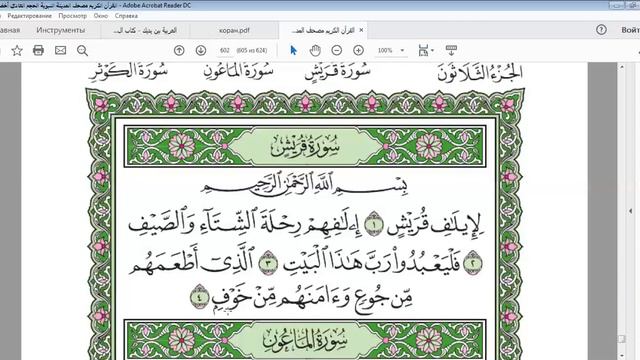 القرآن الكريم مصحف المدينة النبوية الحجم العادي - Adobe Acrobat Reader DC
Редактирование Просмотр Окно Справка
Главная Инструменты العربية بين يديك - كتاب ال... коран.pdf القرآن الكريم مصحف المد... ×
602 (605 из 624) 100%
الجزء الثلاثون سورة قريش سورة الماعون سورة الكوثر
سورة قريش
بِسْمِ اللَّهِ الرَّحْمَٰنِ الرَّحِيمِ
لِإِيلَافِ قُرَيْشٍ ١ إِۦلَافِهِمْ رِحْلَةَ الشِّتَاءِ وَالصَّيْفِ
٢ فَلْيَعْبُدُوا رَبَّ هَٰذَا الْبَيْتِ ٣ الَّذِي أَطْعَمَهُم
مِّن جُوعٍ وَءَامَنَهُم مِّنْ خَوْفٍ ٤
سورة الماعون